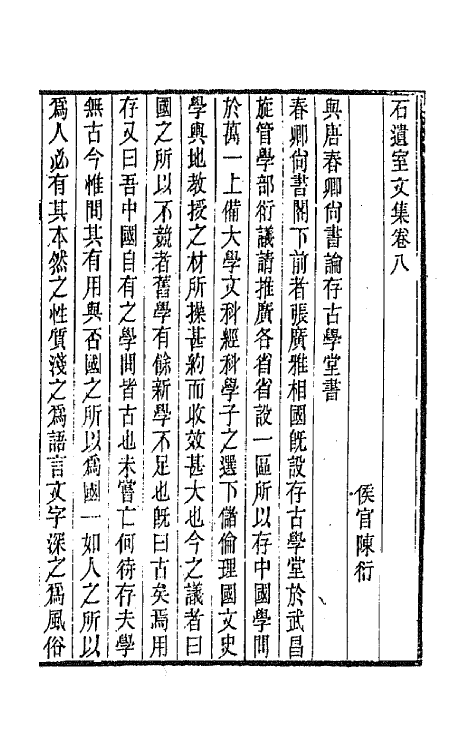 石遺室文集卷八
侯官陳衍
與唐春卿尙書論存古學堂書
春卿尙書閣下前者張廣雅相國旣設存古學堂於武昌
旋管學部衍議請推廣各省省設一區所以存中國學問
於萬一上備大學文科經科學子之選下儲倫理國文史
學輿地敎授之材所操甚約而收效甚大也今之議者曰
國之所以不競者舊學有餘新學不足也旣曰古矣焉用
存又曰吾中國自有之學問皆古也未嘗亡何待存夫學
無古今惟問其有用與否國之所以爲國一如人之所以
爲人必有其本然之性質淺之爲語言文字深之爲風俗